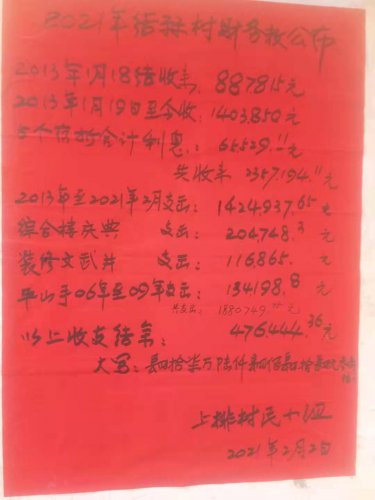 2021年结村财务数公布
2013年1月18结收来: 887815元
2013年1月19日至今收: 1403,850元
5个存折合计利息: 65529.11元
共收来 2357.194.11元
2013年至2021年2月支出: 1424937.65元
综合楼庆典 支出: 204748.3元
装修文武井 支出: 116,865.元
平山手06年至09年支出: 134198.8元
共支出: 1880749.75元
以上收支结余: 476444.36元
大写: 肆拾柒万陆仟肆佰肆拾肆元
上排村民小组
2021年2月2日